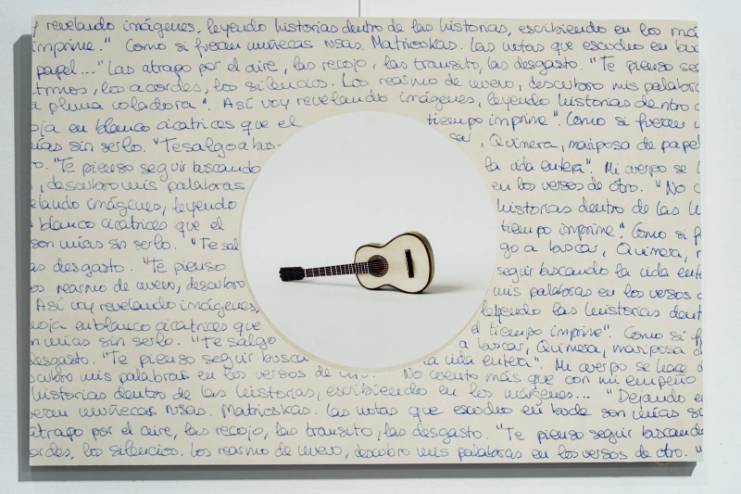 revelando imágenes, leyendo historias dentro de las historias, escribiendo en los
imprime." Como si fueran muñecas rusas. Matrioskas. Las notas que escucho en
papel..." Las atrapo por el aire, las recojo, las transito, las desgasto. "Te pienso
los acordes, los silencios. Los rearmo de nuevo, descubro mis palabras
pluma voladora". Así voy revelando imágenes, leyendo historias dentro
en blanco cicatrices que el tiempo imprime". Como si fueran
sin serlo. "Te salgo a bus- Quimera, mariposa de papel
"Te pienso seguir buscando la vida entera". Mi cuerpo se
, descubro mis palabras en los versos de otro. "No
imágenes, leyendo historias dentro de las
blanco cicatrices que el tiempo imprime". Como si
son mías sin serlo. "Te sal go a buscar, Quimera,
desgasto. "Te pienso seguir buscando la vida
rearmo de nuevo, descubro mis palabras en los versos
Así voy revelando imágenes, leyendo las historias
hoja en blanco cicatrices que el tiempo imprime". Como si
mías sin serlo. "Te salgo a buscar, Quimera, mariposa
desgasto. "Te pienso seguir buscan la vida entera". Mi cuerpo se hace
mis palabras en los versos de No cuento más que con mi empeño
historias dentro de las historias, escribiendo en los márgenes... "Dejando
muñecas rusas. Matrioskas. Las notas que escucho en son mías
atrapo por el aire, las recojo, las transito, las desgasto. "Te pienso seguir buscando
los silencios. Los rearmo de nuevo, descubro mis palabras en los versos de otro. "